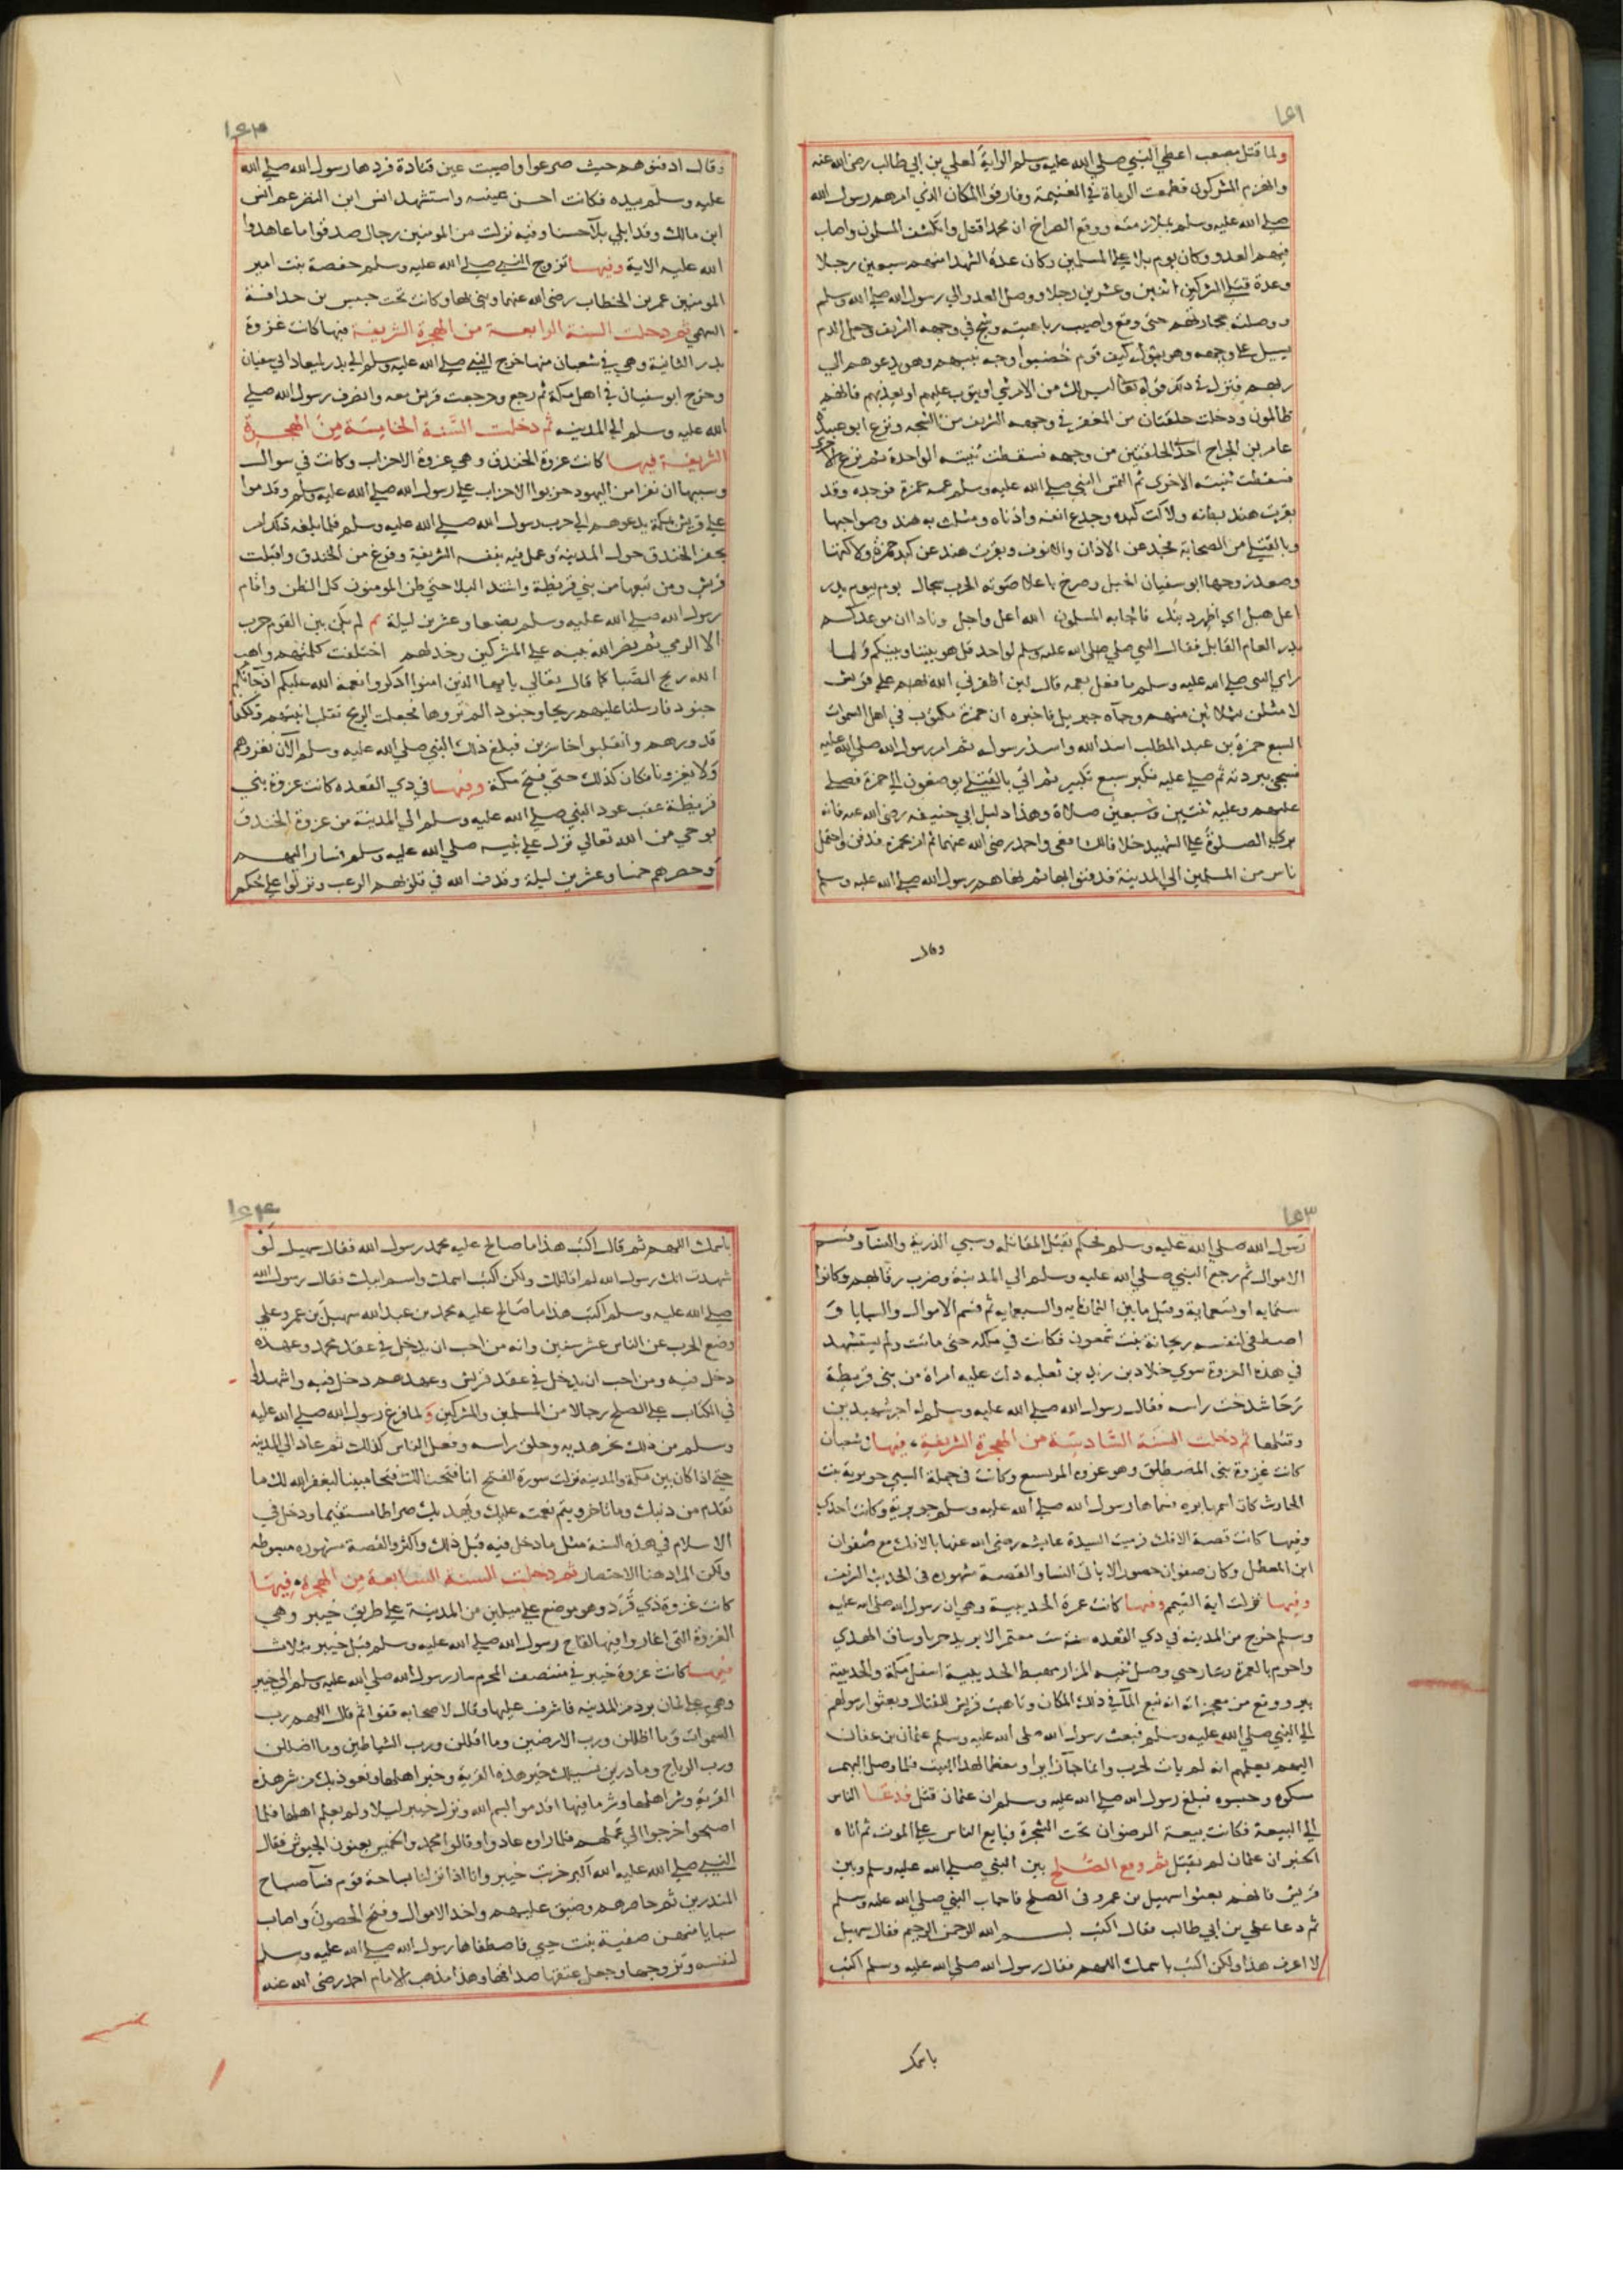 ١٥١
ولما قتل مصعب اعطي النبي صلي الله عليه وسلم الراية لعلي بن ابي طالب رضي الله عنه
وانهزم المشركون فطمعت الرماة في الغنيمة وفارقوا المكان الذي امرهم رسول الله
صلي الله عليه وسلم بملازمته ووقع الصراخ ان محمدا قتل وانكشف المسلمون واصاب
فيهم العدو وكان يوم بلا علي المسلمين وكان عدة الشهدا منهم سبعين رجلا
وعدة قتلي المشركين اثنين وعشرين رجلا ووصل العدو الي رسول الله صلي الله وسلم
ووصلته حجارتهم حتي وقع واصيب رباعيته وشج في وجهه الشريف وجعل الدم
يسيل علي وجهه وهو يقول كيف قوم خضبوا وجه نبيهم وهو يدعوهم الي
ربهم فنزل في ذلك قوله تعالي ليس لك من الامر شي او يتوب عليهم او يعذبهم فانهم
ظالمون ودخلت حلقتان من المغفر في وجهه الشريف من الشجه ونزع ابو عبيدة
عامر بن الجراح احد الحلقتين من وجهه فسقطت ثنيته الواحدة ثم نزع الاخرى
فسقطت ثنيته الاخرى ثم التمس النبي صلي الله عليه وسلم عمه حمزة فوجده وقد
بقرت هند بطنه ولاكت كبده وجدع انفه واذناه ومثلت به هند وصواحبها
وبالقتلي من الصحابة فجدعن الاذان والانوف وبقرت هند عن كبد حمزة ولاكتها
وصعد زوجها ابو سفيان الجبل وصرخ باعلا صوته الحرب سجال يوم بيوم بدر
اعل هبل اي اظهر دينك فاجابه المسلمون الله اعل واجل ونادا ان موعدكم
بدر العام القابل فقال النبي صلي الله عليه وسلم لواحد قل هو بيننا وبينكم ولما
راي النبي صلي الله عليه وسلم ما فعل بعمه قال لين اظفرني الله بهم علي قريش
لا مثلن بثلاثين منهم وجآه جبريل فاخبره ان حمزة مكتوب في اهل السموات
السبع حمزة بن عبد المطلب اسد الله واسد رسوله ثم امر رسول الله صلي الله عليه
فسجي ببردته ثم صلي عليه فكبر سبع تكبير ثم اتي بالقتلي يوضعون الي حمزة فصلي
عليهم وعليه ثنتين وسبعين صلاة وهذا دليل ابي حنيفه رضي الله عنه فانه
يري الصلوة علي الشهيد خلافا للشافعي واحمد رضي الله عنهما ثم امر بحمزه فدفن واحتمل
ناس من المسلمين الي المدينة فدفنوا بها ثم نهاهم رسول الله صلي الله عليه وسلم
وقال
١٥٢
وقال ادفنوهم حيث صرعوا واصيبت عين قتادة فردها رسول الله صلي الله
عليه وسلم بيده فكانت احسن عينيه واستشهد انس ابن النضر عم انس
ابن مالك وقد ابلي بلآ حسنا وفيه نزلت من المومنين رجال صدقوا ما عاهدوا
الله عليه الاية وفيها تزوج النبي صلي الله عليه وسلم حفصة بنت امير
المومنين عمر بن الخطاب رضي الله عنهما وبني بها وكانت تحت خنيس بن حذافة
السهمي ثم دخلت السنة الرابعة من الهجرة الشريفة فيها كانت غزوة
بدر الثانية وهي في شعبان منها خرج النبي صلي الله عليه وسلم الي بدر لميعاد ابي سفيان
وخرج ابو سفيان في اهل مكة ثم رجع ورجعت قريش معه وانصرف رسول الله صلي
الله عليه وسلم الي المدينه ثم دخلت السنة الخامسة من الهجرة
الشريفة فيها كانت غزوة الخندق وهي غزوة الاحزاب وكانت في شوال
وسببها ان نفرا من اليهود حزبوا الاحزاب علي رسول الله صلي الله عليه وسلم وقدموا
علي قريش بمكة يدعوهم الي حرب رسول الله صلي الله عليه وسلم فلما بلغه ذلك امر
بحفر الخندق حول المدينة وعمل فيه بنفسه الشريفة وفرغ من الخندق واقبلت
قريش ومن تبعها من بني قريظة واشتد البلا حتي ظن المومنون كل الظن واقام
رسول الله صلي الله عليه وسلم بضعا وعشرين ليلة ثم لم يكن بين القوم حرب
الا الرمي ثم نصر الله نبيه علي المشركين وخذلهم اختلفت كلمتهم واهب
الله ريح الصبا كما قال تعالي يا يها الذين امنوا اذكروا نعمة الله عليكم اذ جآتكم
جنود فارسلنا عليهم ريحا وجنود الم تروها فجعلت الريح تقلب ابنيتهم وتكفا
قدورهم وانقلبوا خاسرين فبلغ ذلك النبي صلي الله عليه وسلم الآن نغزوهم
ولا يغزونا فكان كذلك حتي فتح مكة وفيها في ذي القعده كانت غزوة بني
قريظة عقب عود النبي صلي الله عليه وسلم الي المدينة من غزوة الخندق
بوحي من الله تعالي نزل علي نبيه صلي الله عليه وسلم فسار اليهم
وحصرهم خمسا وعشرين ليلة وقذف الله في قلوبهم الرعب ونزلوا علي حكم
١٥٣
رسول الله صلي الله عليه وسلم فحكم بقتل المقاتله وسبي الذرية والنسآ وقسم
الاموال ثم رجع النبي صلي الله عليه وسلم الي المدينة وضرب رقابهم وكانوا
ستمايه او تسعماية وقيل ما بين الثمانمايه والسبعمايه ثم قسم الاموال والسبايا و
اصطفي لنفسه ريحانة بنت شمعون فكانت في ملكه حتي ماتت ولم يستشهد
في هذه الغزوة سوي خلاد بن زيد بن ثعلبه دلت عليه امراة من بني قريظة
رحا شدخت راسه فقال رسول الله صلي الله عليه وسلم له اجر شهيدين
وقتلها ثم دخلت السنة السادسة من الهجرة الشريفة، فيها في شعبان
كانت غزوة بني المصطلق وهو غزوه المريسع وكانت في جملة السبي جويرية بنت
الحارث كان اسمها بره فسماها رسول الله صلي الله عليه وسلم جويرية وكانت احدي
وفيها كانت قصة الافك رميت السيدة عايشه رضي الله عنها بالافك مع صفوان
ابن المعطل وكان صفوان حصورا لا ياتي النسا والقصة مشهوره في الحديث الشريف
وفيها نزلت اية التيمم وفيها كانت عمرة الحديبية وهي ان رسول الله صلي الله عليه
وسلم خرج من المدينه في ذي القعده سنة ست معتمرا لا يريد حربا وساق الهدي
واحرم بالعمرة وسار حتي وصل ثنيه المرار مهبط الحديبية اسفل مكة والحديبية
بير ووقع من معجزاته انه نبع المآ في ذلك المكان وتاهبت قريش للقتال وبعثوا رسولهم
الي النبي صلي الله عليه وسلم فبعث رسول الله صلي الله عليه وسلم عثمان بن عفان
اليهم يعلمهم انه لم يات لحرب وانما جآ زايرا ومعظما لهذا البيت فلما وصل اليهم
مسكوه وحبسوه فبلغ رسول الله صلي الله عليه وسلم ان عثمان قتل فدعا الناس
الي البيعة فكانت بيعة الرضوان تحت الشجرة فبايع الناس علي الموت ثم اتاه
الخبر ان عثمان لم يقتل ثم وقع الصلح بين النبي صلي الله عليه وسلم وبين
قريش فانهم بعثوا سهيل بن عمرو في الصلح فاجاب النبي صلي الله عليه وسلم
ثم دعا علي بن ابي طالب فقال اكتب بسم الله الرحمن الرحيم فقال سهيل
لا اعرف هذا ولكن اكتب باسمك اللهم فقال رسول الله صلي الله عليه وسلم اكتب
باسمك
١٥٤
باسمك اللهم ثم قال اكتب هذا ما صالح عليه محمد رسول الله فقال سهيل لو
شهدت انك رسول الله لم اقاتلك ولكن اكتب اسمك واسم ابيك فقال رسول الله
صلي الله عليه وسلم اكتب هذا ما صالح عليه محمد بن عبد الله سهيل بن عمرو علي
وضع الحرب عن الناس عشر سنين وانه من احب ان يدخل في عقد محمد وعهده
دخل فيه ومن احب ان يدخل في عقد قريش وعهدهم دخل فيه واشهد
في الكتاب علي الصلح رجالا من المسلمين والمشركين ولما فرغ رسول الله صلي الله عليه
وسلم من ذلك نحر هديه وحلق راسه وفعل الناس كذلك ثم عاد الي المدينه
حتي اذا كان بين مكة والمدينه نزلت سورة الفتح انا فتحنا لك فتحا مبينا ليغفر الله لك ما
تقدم من ذنبك وما تاخر ويتم نعمته عليك ويهديك صراطا مستقيما ودخل في
الاسلام في هذه السنة مثل ما دخل فيه قبل ذلك واكثر والقصة مشهوره مبسوطه
ولكن المراد هنا الاختصار ثم دخلت السنة السابعة من الهجرة، فيها
كانت غزوة ذي قرد وهو موضع علي ميلين من المدينة علي طريق خيبر وهي
الغزوة التي اغاروا فيها لقاح رسول الله صلي الله عليه وسلم قبل خيبر بثلاث
فيها كانت غزوة خيبر في منتصف المحرم سار رسول الله صلي الله عليه وسلم الي خيبر
وهي علي ثمان برد من المدينه فاشرف عليها وقال لاصحابه قفوا ثم قال اللهم رب
السموات وما اظللن ورب الارضين وما اقللن ورب الشياطين وما اضللن
ورب الرياح وما ذرين نسيلك خير هذه القرية وخير اهلها ونعوذ بك من شر هذه
القرية وشر اهلها وشر ما فيها اقدموا بسم الله ونزل خيبر ليلا ولم يعلم اهلها فلما
اصبحوا خرجوا الي عملهم فلما راوه عادوا وقالوا محمد والخميس يعنون الجيوش فقال
النبي صلي الله عليه الله اكبر خربت خيبر وانا اذا نزلنا بساحة قوم فسآ صباح
المنذرين ثم حاصرهم وضيق عليهم واخذ الاموال وفتح الحصون واصاب
سبايا منهن صفية بنت حيي فاصطفاها رسول الله صلي الله عليه وسلم
لنفسه وتزوجها وجعل عتقها صداقها وهذا مذهب الامام احمد رضي الله عنه